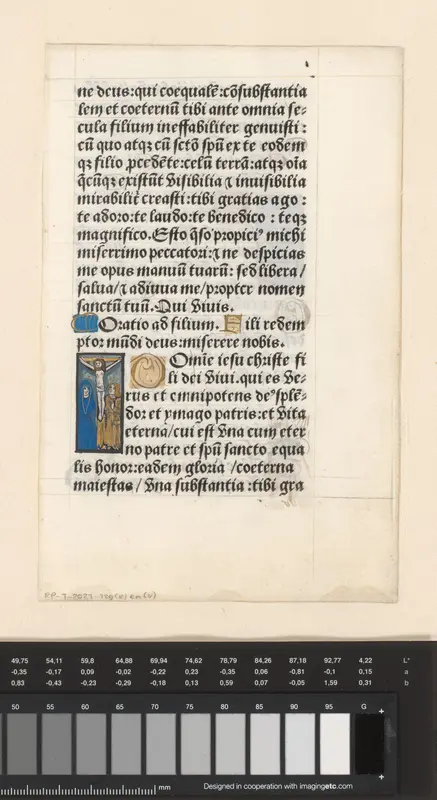 ne deus: qui coequalē: cōsubstantia
lem et coeternū tibi ante omnia se⸗
cula filium ineffabiliter genuisti :
cū quo atqȝ cū sctō spū ex te eodem
qȝ filio ꝓcedēte: celū terrā: atqȝ oīa
q̄cūqȝ existūt visibilia ⁊ inuisibilia
mirabilit̄ creasti: tibi gratias ago :
te adoro: te laudo: te benedico : teqȝ
magnifico. Esto q̄so ꝓpiciꝰ michi
miserrimo peccatori: ⁊ ne despicias
me opus manuū tuarū: sed libera /
salua / ⁊ adiuua me / propter nomen
sanctū tuū. Qui viuis.
Oratio ad filium. Fili redem
ptor mūdi deus: miserere nobis.
Domīe iesu christe fi
li dei viui. qui es ve⸗
rus et omnipotens deꝰ splē⸗
dor et ymago patris: et vita
eterna / cui est vna cum eter
no patre et spū sancto equa
lis honor: eadem gloria / coeterna
maiestas / vna substantia : tibi gra
49,75 54,11 59,8 64,88 69,94 74,62 78,79 84,26 87,18 92,77 4,22 L*
-0,35 -0,17 0,09 -0,02 -0,22 0,23 -0,35 0,06 -0,81 -0,1 0,15 a
0,83 -0,43 -0,23 -0,29 -0,18 0,13 0,59 0,07 -0,05 1,59 0,31 b
50 55 60 65 70 75 80 85 90 95 G
mm Designed in cooperation with imagingetc.com